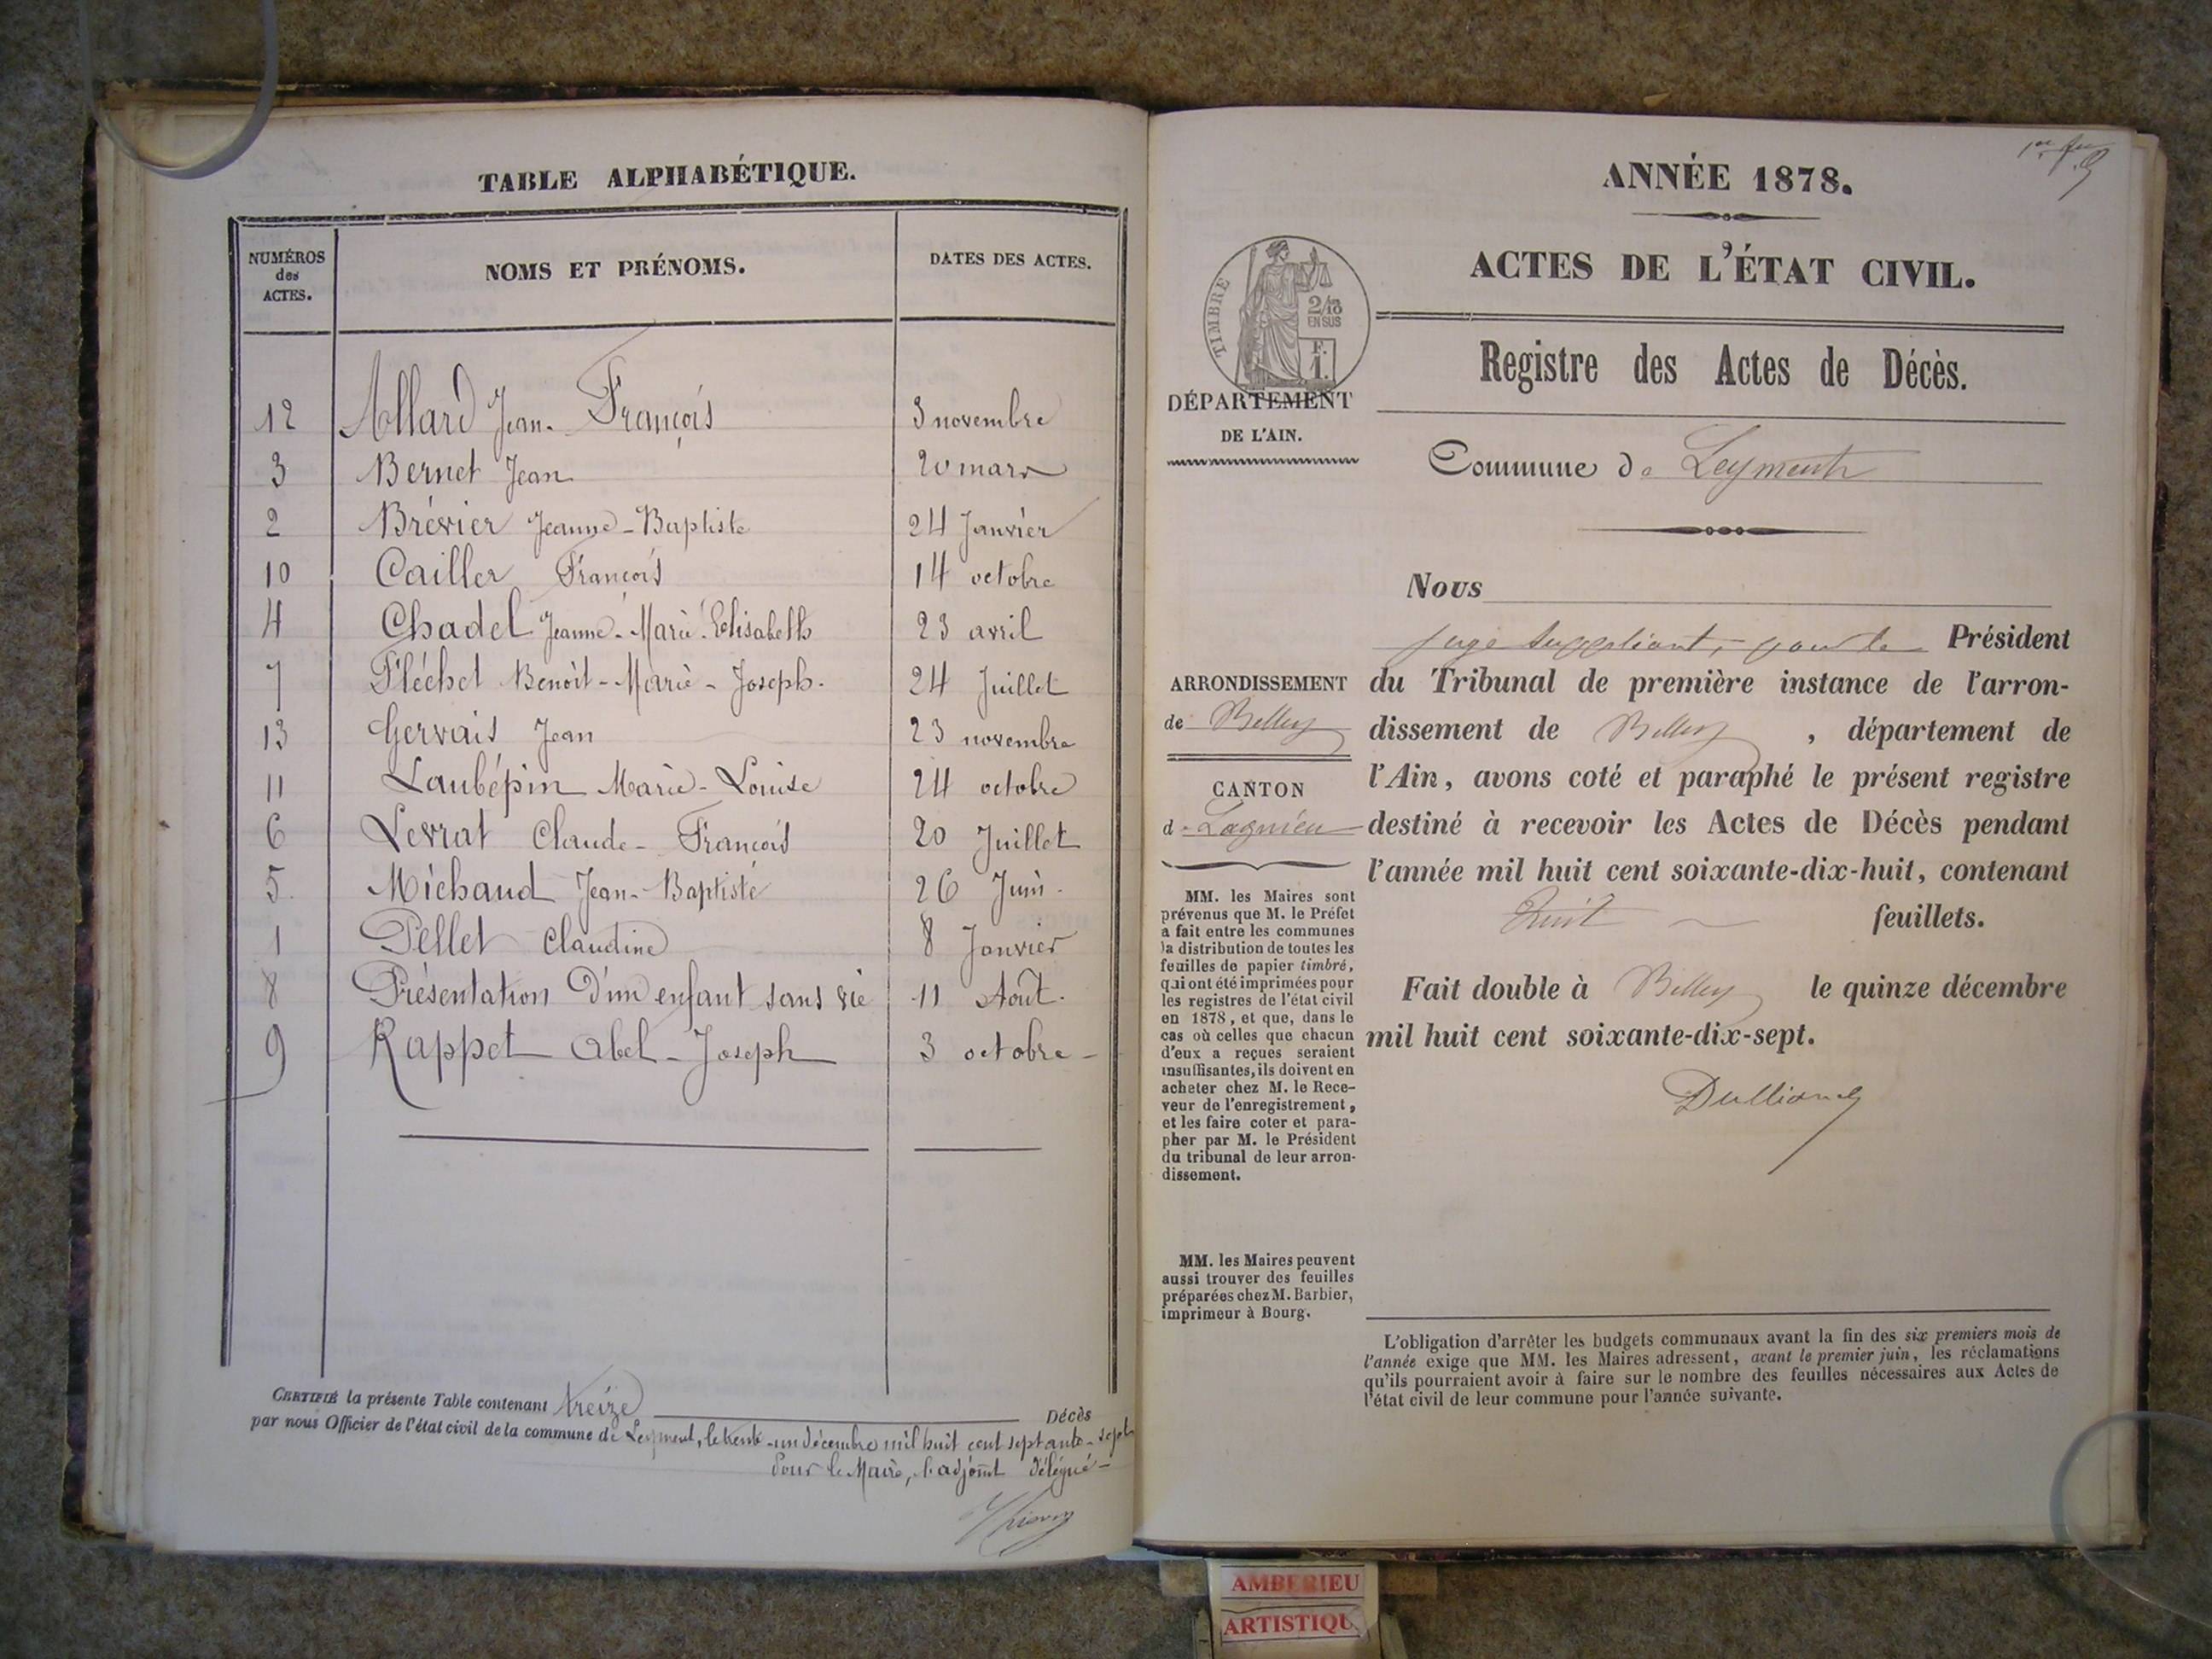 TABLE ALPHABÉTIQUE.
NUMÉROS
des
ACTES.
NOMS ET PRÉNOMS.
DATES DES ACTES.
12 Allard Jean-François 3 novembre
3 Bernet Jean 20 mars
2 Brévier Jeanne-Baptiste 24 Janvier
10 Cailler François 14 octobre
4 Chadel Jeanne-Marie-Elisabeth 23 avril
7 Fléchet Benoit-Marie-Joseph. 24 Juillet
13 Gervais Jean 23 novembre
11 Laubépin Marie-Louise 24 octobre
6 Levrat Claude-François 20 Juillet
5. Michaud Jean-Baptiste 26 Juin.
1 Pellet Claudine 8 Janvier
8 Présentation D'un enfant sans vie 11 Août.
9 Rappet Abel-Joseph 3 octobre-
CERTIFIÉ la présente Table contenant treize Décès
par nous Officier de l'état civil de la commune de Leyment, le trente-un décembre mil huit cent septante-sept
Pour le Maire, l'adjoint délégué-
ANNÉE 1878.
ACTES DE L'ÉTAT CIVIL.
TIMBRE
2/10
EN SUS
F.
1.
Registre des Actes de Décès.
DÉPARTEMENT
DE L'AIN.
Commune de Leyment
Nous
juge suppléant, pour le Président
du Tribunal de première instance de l'arron-
dissement de Belley, département de
l'Ain, avons coté et paraphé le présent registre
destiné à recevoir les Actes de Décès pendant
l'année mil huit cent soixante-dix-huit, contenant
huit feuillets.
Fait double à Belley le quinze décembre
mil huit cent soixante-dix-sept.
ARRONDISSEMENT
de Belley
CANTON
d. Lagnieu
MM. les Maires sont
prévenus que M. le Préfet
a fait entre les communes
la distribution de toutes les
feuilles de papier timbré,
qui ont été imprimées pour
les registres de l'état civil
en 1878, et que, dans le
cas où celles que chacun
d'eux a reçues seraient
insuffisantes, ils doivent en
acheter chez M. le Rece-
veur de l'enregistrement,
et les faire coter et para-
pher par M. le Président
du tribunal de leur arron-
dissement.
MM. les Maires peuvent
aussi trouver des feuilles
préparées chez M. Barbier,
imprimeur à Bourg.
L'obligation d'arrêter les budgets communaux avant la fin des six premiers mois de
l'année exige que MM. les Maires adressent, avant le premier juin, les réclamations
qu'ils pourraient avoir à faire sur le nombre des feuilles nécessaires aux Actes de
l'état civil de leur commune pour l'année suivante.
AMBERIEU
ARTISTIQU